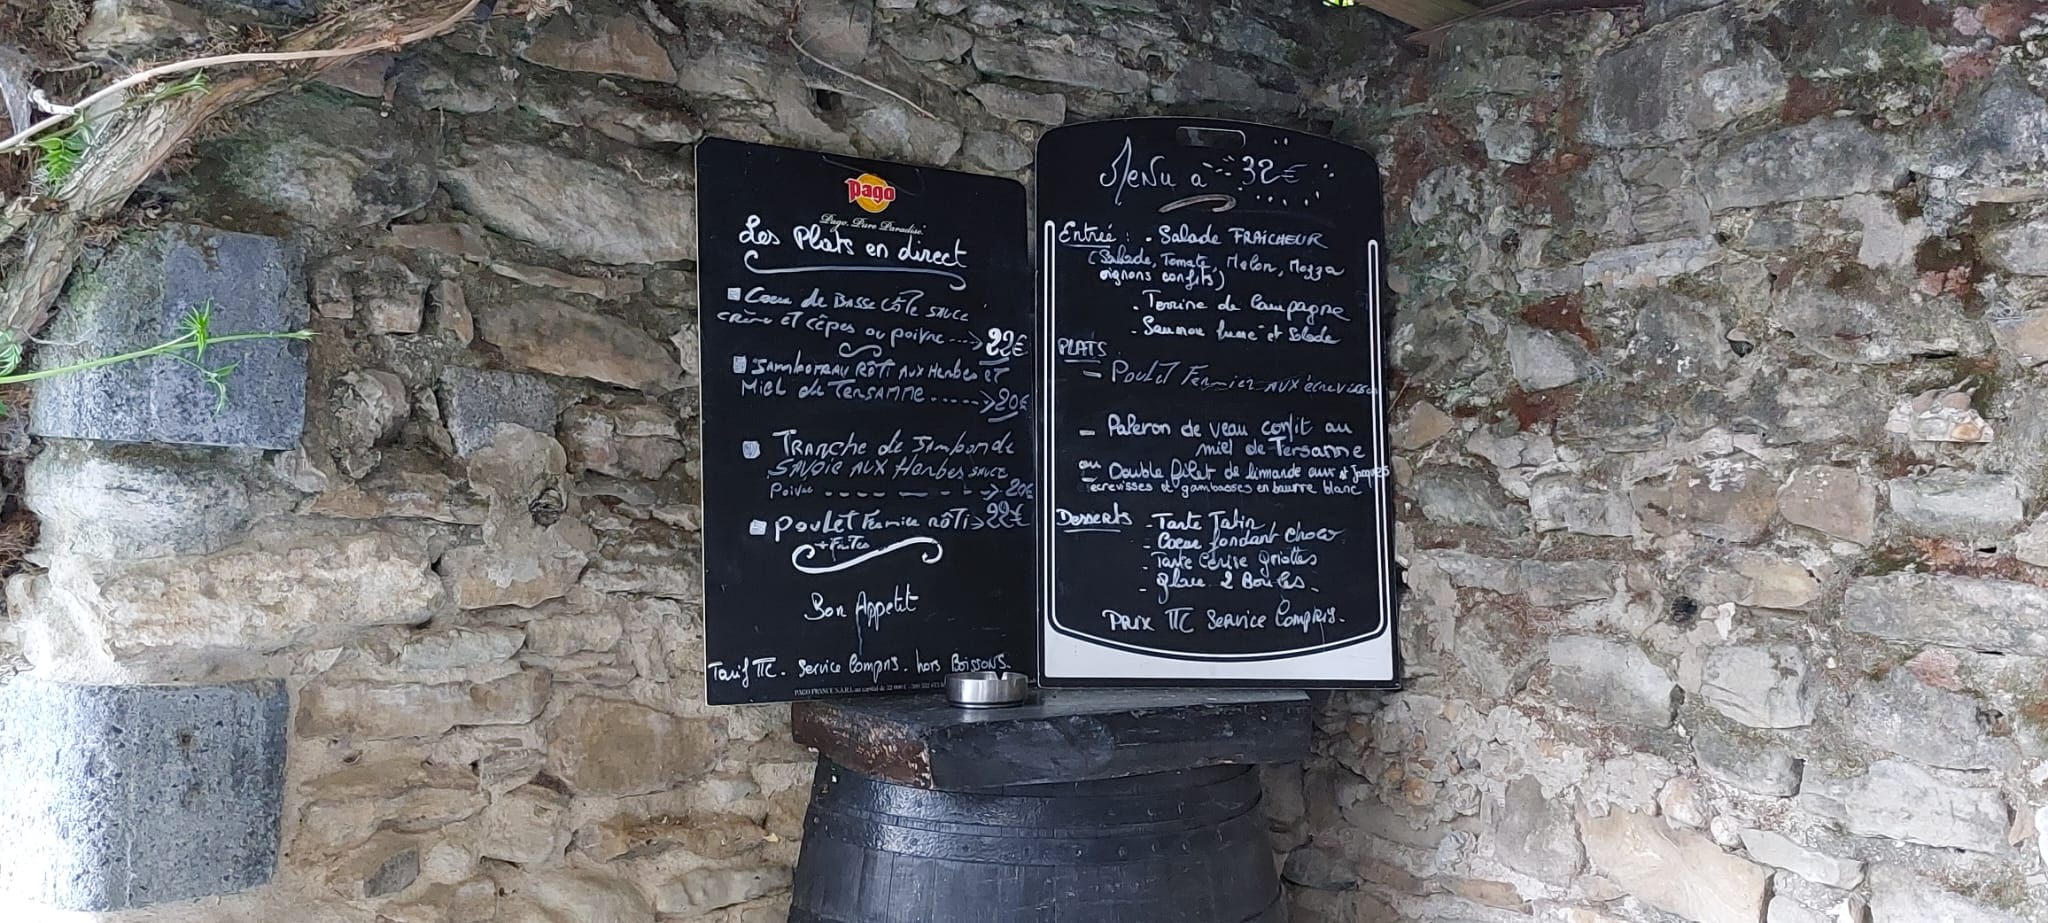 pago
Pago. Pure Paradise.
Les Plats en direct
Coeur de Basse Côte sauce
crème et cêpes ou poivre ---> 22€
Jambonneau Rôti aux Herbes et
Miel de Tersanne -----> 20€
Tranche de Jambon de
Savoie aux Herbes sauce
Poivre - - - - - -> 20€
Poulet Fermier rôti > 22€
+ Frites
Bon Appetit
Tarif TTC. Service Compris. hors Boissons.
PAGO FRANCE S.A.R.L au capital de
Menu a 32€
Entrée : . Salade FRAÎCHEUR
(Salade, Tomate, Melon, Mozza
oignons confits)
- Terrine de Campagne
- Saumon fumé et Salade
PLATS
- Poulet Fermier aux écrevisses
- Paleron de veau confit au
miel de Tersanne
ou
- Double filet de limande aux st Jacques
écrevisses et gambasses en beurre blanc
Desserts - Tarte Tatin
- Coeur fondant choco
- Tarte Cerise griottes
- glace 2 Boules -
PRIX TTC Service Compris.